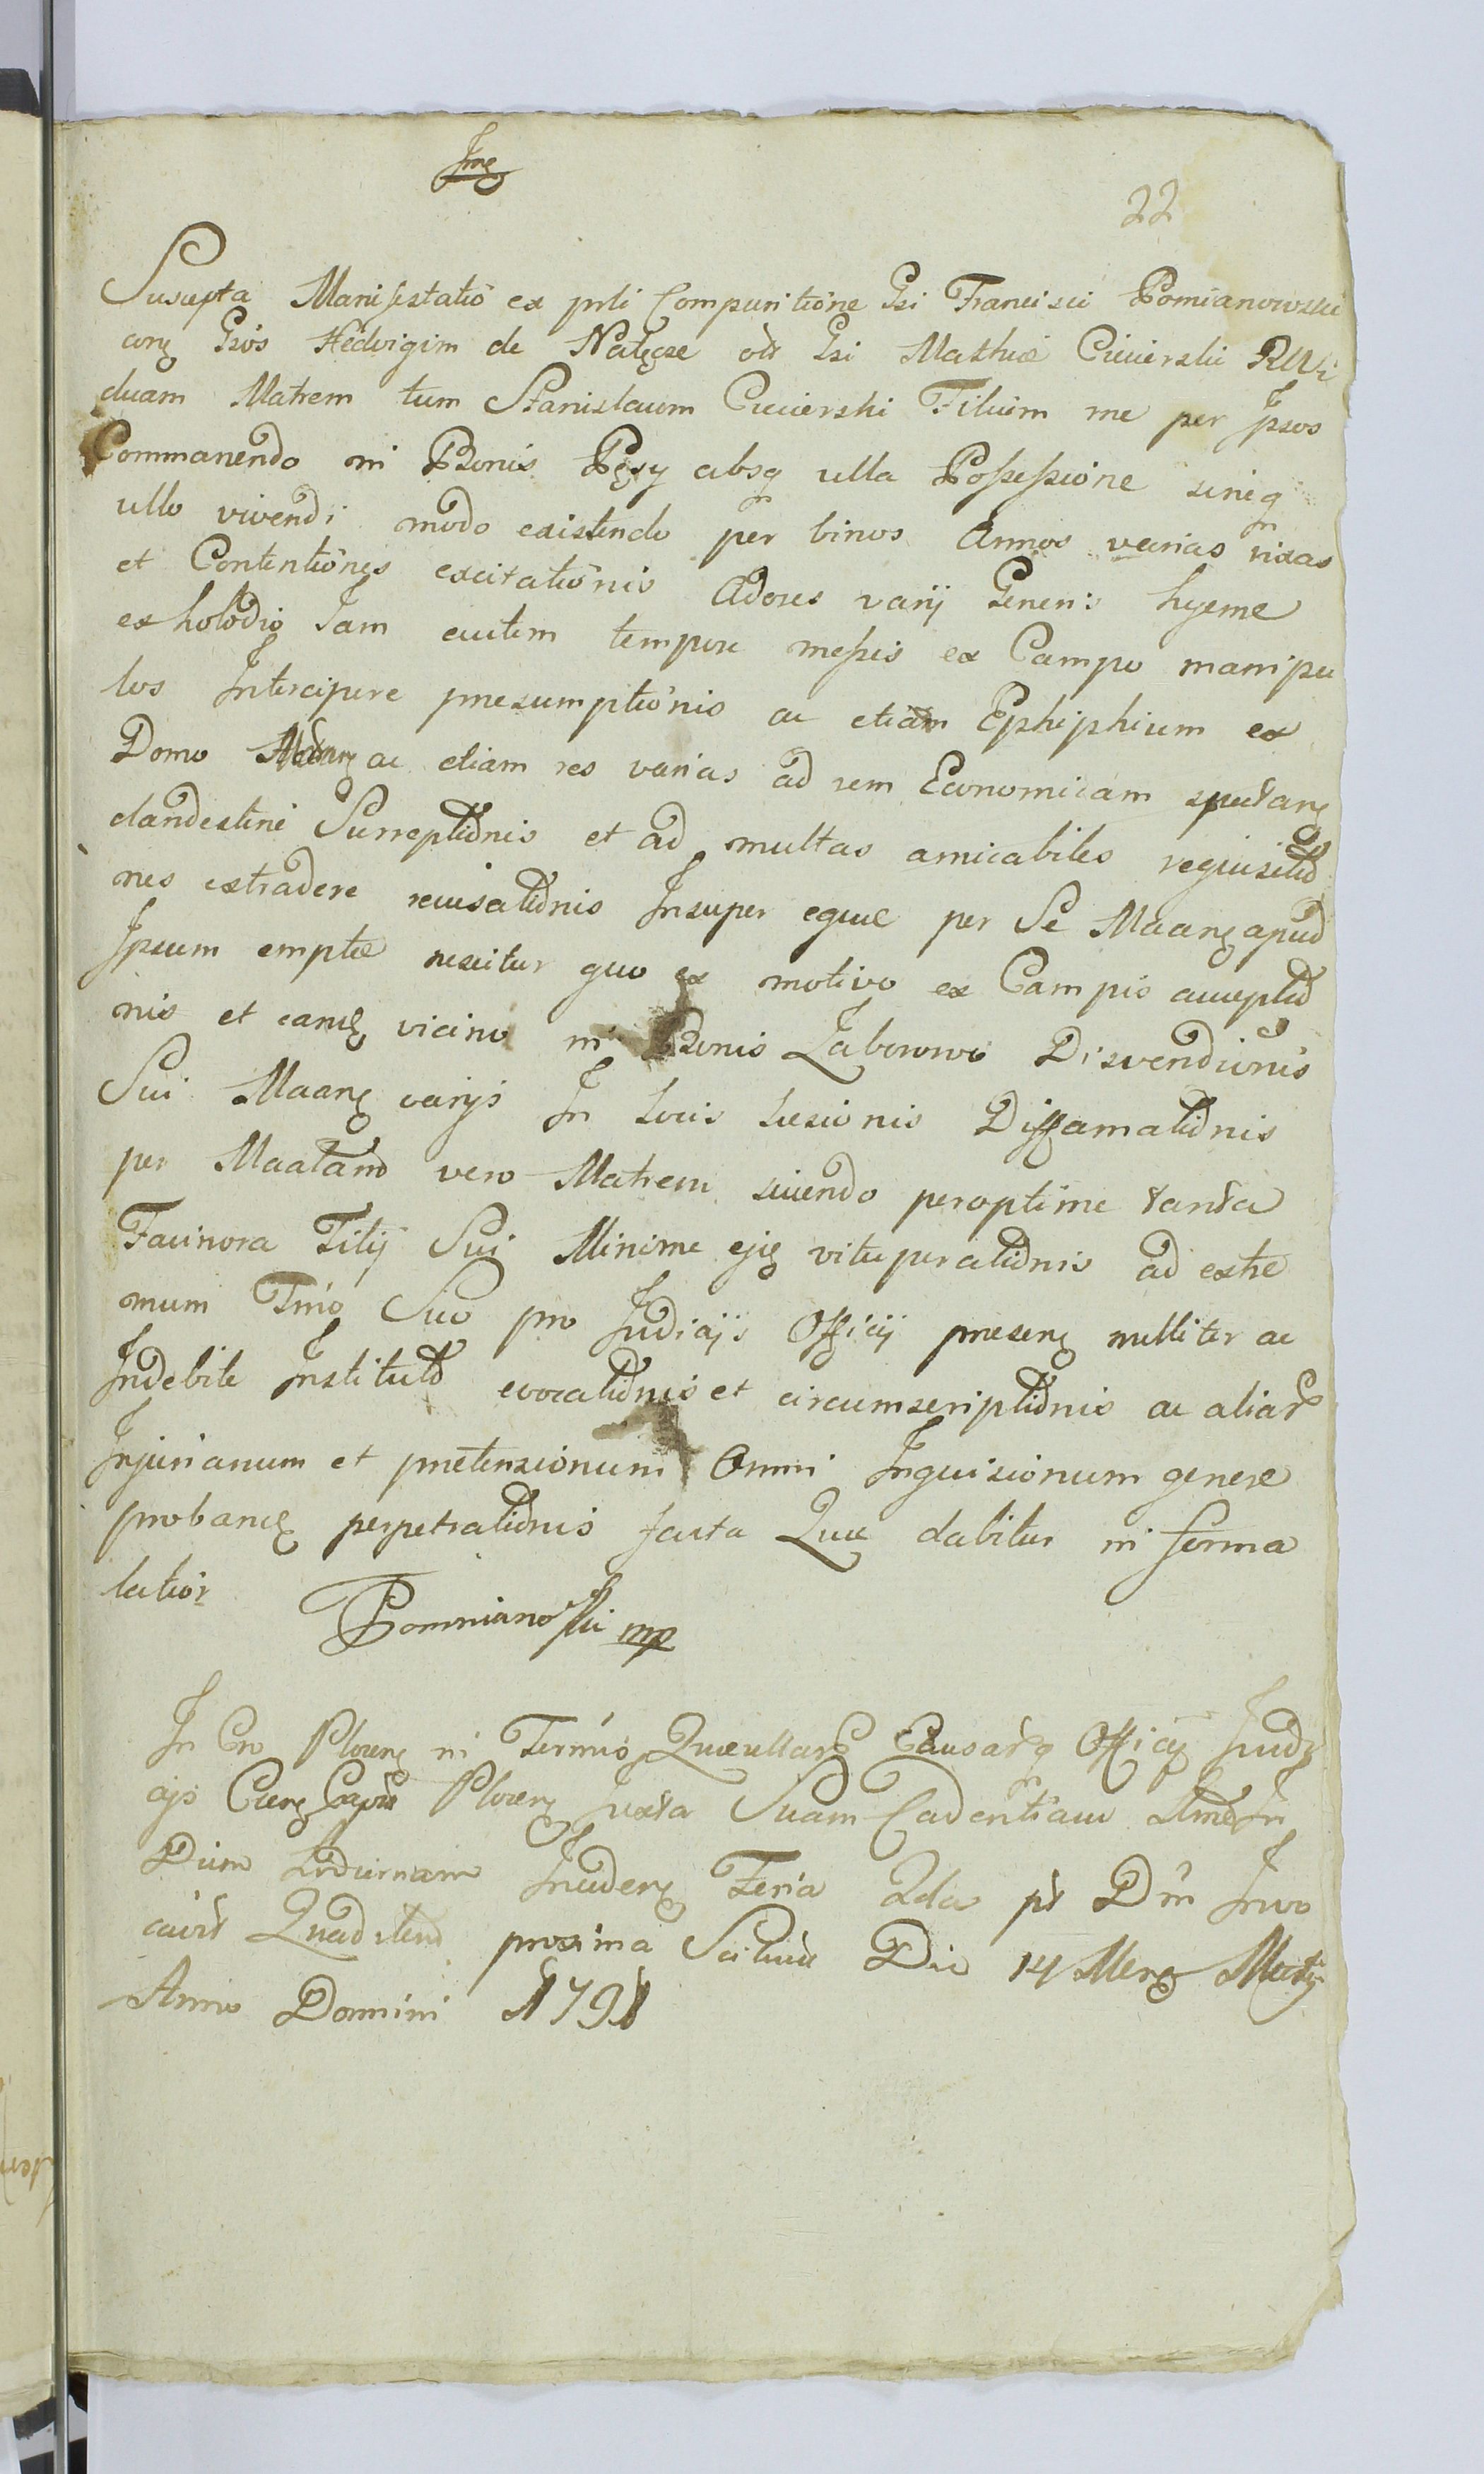 22
Suscepta Manifestatio ex prti Comparitione Gsi Francisci Pomianowski
Gsos Hedvigim de Natęcze Gsi Mathiæ Ciecierski
duam Matrem tum Stanislaum Ciecierski Filium me per Ipsos
Commanendo in Bonis absq ulla Possessione sineq
ullo vivendi modo existendo per binos Annos varias rixas
et Contentiones excitationis Adores varij Generis hyeme
ex holodio Jam autem tempore messis ex Campo manipu
los Intercipere presumptionis ac etiam Ephiphium ex
Domo ac etiam res varias ad rem Economicam
clandestine Surreptionis et ad multas amicabiles requisitio
nes extradere recusationis Insuper equæ per Se apud
Ipsum emptæ nescitur quo ex motivo ex Campis acceptio
nis et vicino in Bonis Zaborowo Disvendionis
Sui varijs In Locis Lesionis Diffamationis
per vero Matrem sciendo peroptime tanta
Facinora Filij Sui Minime vituperationis ad extre
mum Tmo Suo pro Judicijs Officij nulliter ac
Indebite Institutô evocationis et circumscriptionis ac aliar
Injuriarum et pretensionum Omni Inquisionum genere
perpetrationis facta Quæ dabitur in forma
latior Pomnianoski mp
In Cro in Termis Querellar Causarq Officij Judi
Juxta Suam Cadentiam In
Diem Feria 2da pt Dm Invo
cavit proxima Scilicet Die 14 Martij
Anno Domini 1791